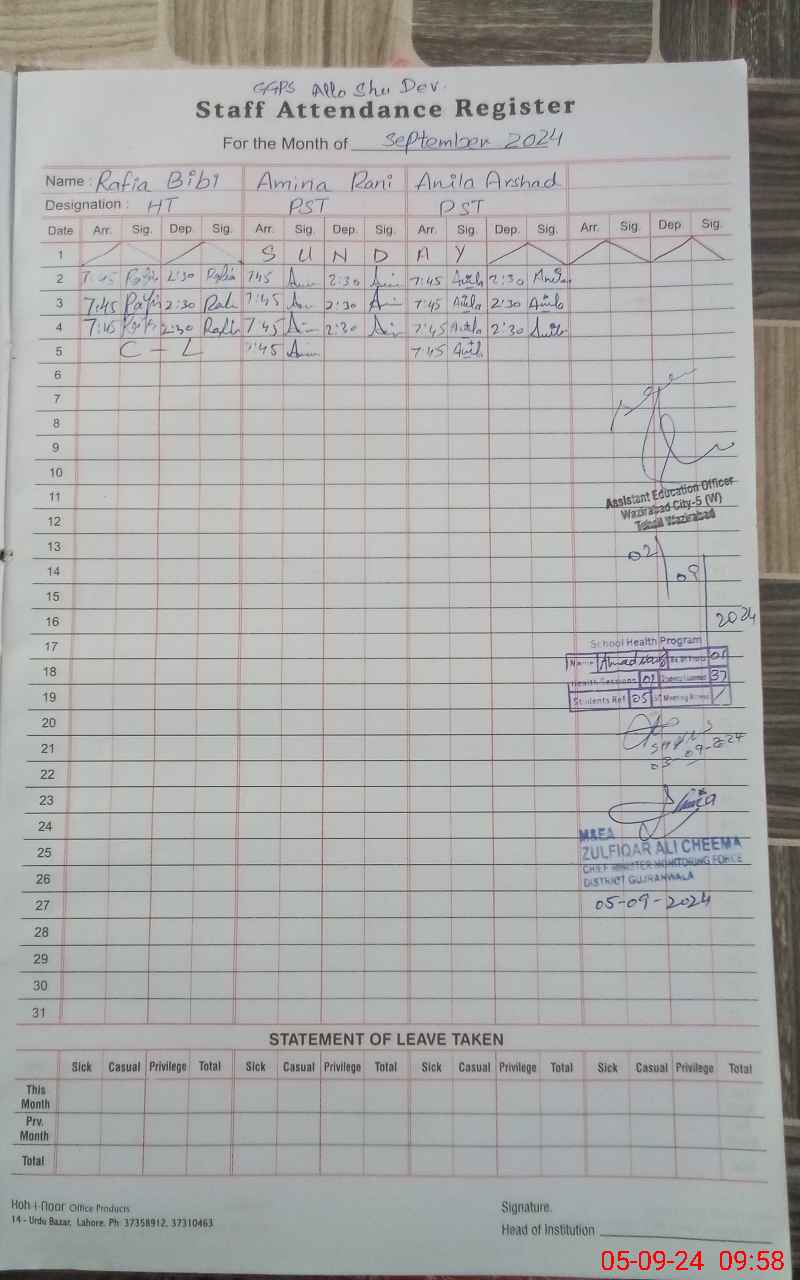 GGPS Allo Sher Dev.
Staff Attendance Register
For the Month of September 2024
Name : Rafia Bibi Amina Rani Anila Arshad
Designation : HT PST PST
Date Arr. Sig. Dep. Sig. Arr. Sig. Dep. Sig. Arr. Sig. Dep. Sig. Arr. Sig. Dep. Sig.
1 S U N D A Y
2 7:45 Rafia 2:30 Rafia 7:45 2:30 7:45 Anila 2:30 Anila
3 7:45 Rafia 2:30 7:45 2:30 7:45 Anila 2:30 Anila
4 7:45 Rafia 2:30 7:45 2:30 7:45 Anila 2:30 Anila
5 C - L 7:45 7:45 Anila
6
7
8
9
10
11
Assistant Education Officer
12
Wazirabad City-5 (W)
Tehsil Wazirabad
13
02
14
09
15
16
2024
17
School Health Program
18
Name
Health Sessions 01 37
19
Students Ref 05
20
21
03-09-2024
22
23
24
M&EA
25
ZULFIQAR ALI CHEEMA
CHIEF MINISTER MONITORING FORCE
26
DISTRICT GUJRANWALA
27
05-09-2024
28
29
30
31
STATEMENT OF LEAVE TAKEN
Sick Casual Privilege Total Sick Casual Privilege Total Sick Casual Privilege Total Sick Casual Privilege Total
This Month
Prv. Month
Total
Hoh-i-noor Office Products
14 - Urdu Bazar, Lahore. Ph: 37358912, 37310463
Signature.
Head of Institution
05-09-24 09:58